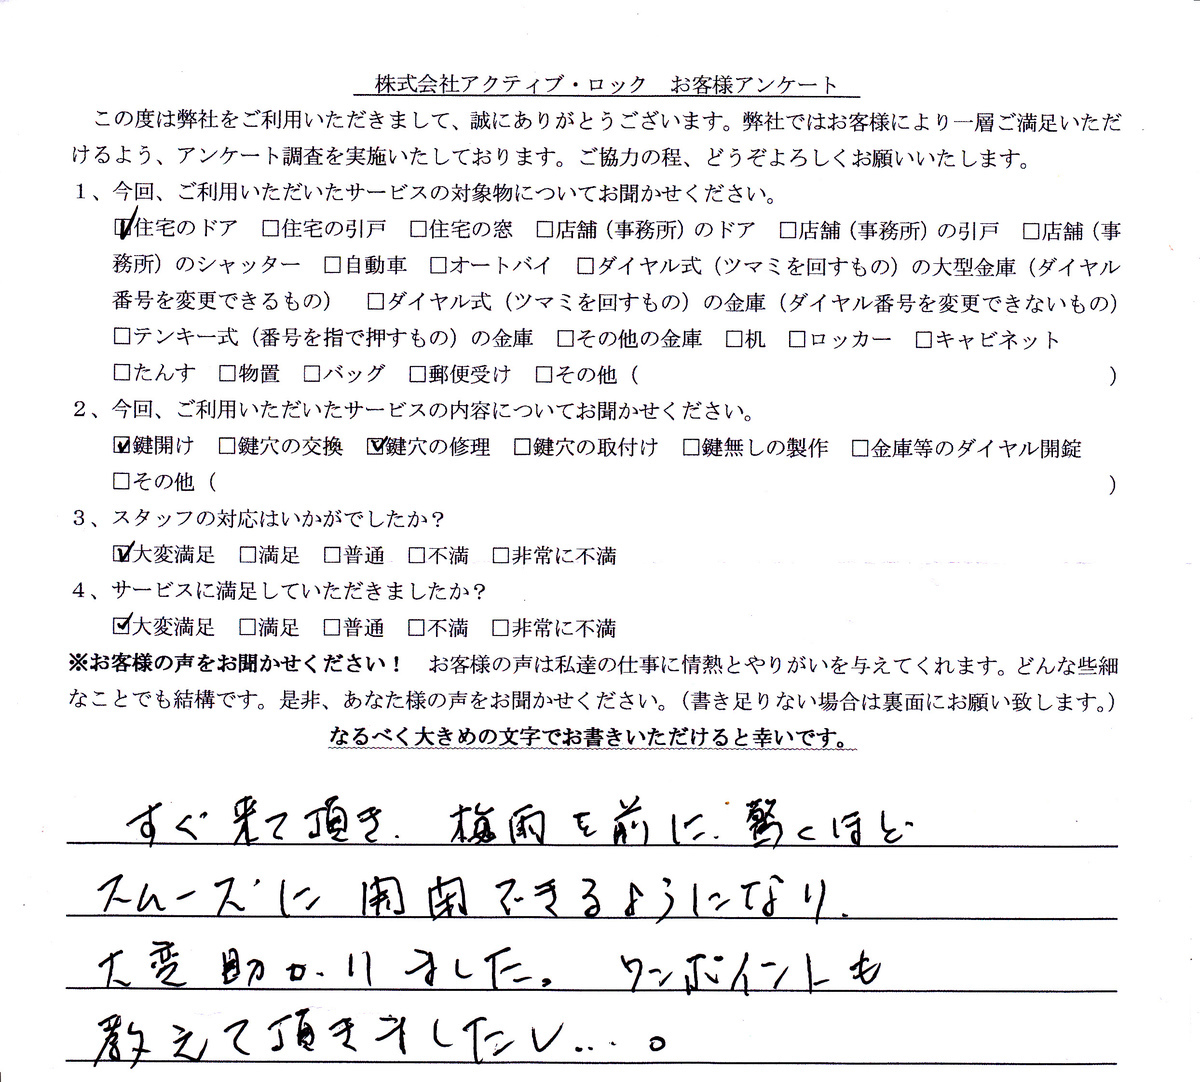 株式会社アクティブ・ロック　お客様アンケート
この度は弊社をご利用いただきまして、誠にありがとうございます。弊社ではお客様により一層ご満足いただ
けるよう、アンケート調査を実施いたしております。ご協力の程、どうぞよろしくお願いいたします。
１、今回、ご利用いただいたサービスの対象物についてお聞かせください。
☑住宅のドア　□住宅の引戸　□住宅の窓　□店舗（事務所）のドア　□店舗（事務所）の引戸　□店舗（事
務所）のシャッター　□自動車　□オートバイ　□ダイヤル式（ツマミを回すもの）の大型金庫（ダイヤル
番号を変更できるもの）　□ダイヤル式（ツマミを回すもの）の金庫（ダイヤル番号を変更できないもの）
□テンキー式（番号を指で押すもの）の金庫　□その他の金庫　□机　□ロッカー　□キャビネット
□たんす　□物置　□バッグ　□郵便受け　□その他（　　　　　）
２、今回、ご利用いただいたサービスの内容についてお聞かせください。
☑鍵開け　□鍵穴の交換　☑鍵穴の修理　□鍵穴の取付け　□鍵無しの製作　□金庫等のダイヤル開錠
□その他（　　　　　）
３、スタッフの対応はいかがでしたか？
☑大変満足　□満足　□普通　□不満　□非常に不満
４、サービスに満足していただきましたか？
☑大変満足　□満足　□普通　□不満　□非常に不満
※お客様の声をお聞かせください！　お客様の声は私達の仕事に情熱とやりがいを与えてくれます。どんな些細
なことでも結構です。是非、あなた様の声をお聞かせください。（書き足りない場合は裏面にお願い致します。）
なるべく大きめの文字でお書きいただけると幸いです。
すぐ来て頂き、梅雨を前に、驚くほど
スムーズに開閉できるようになり、
大変助かりました。ワンポイントも
教えて頂きましたし…。